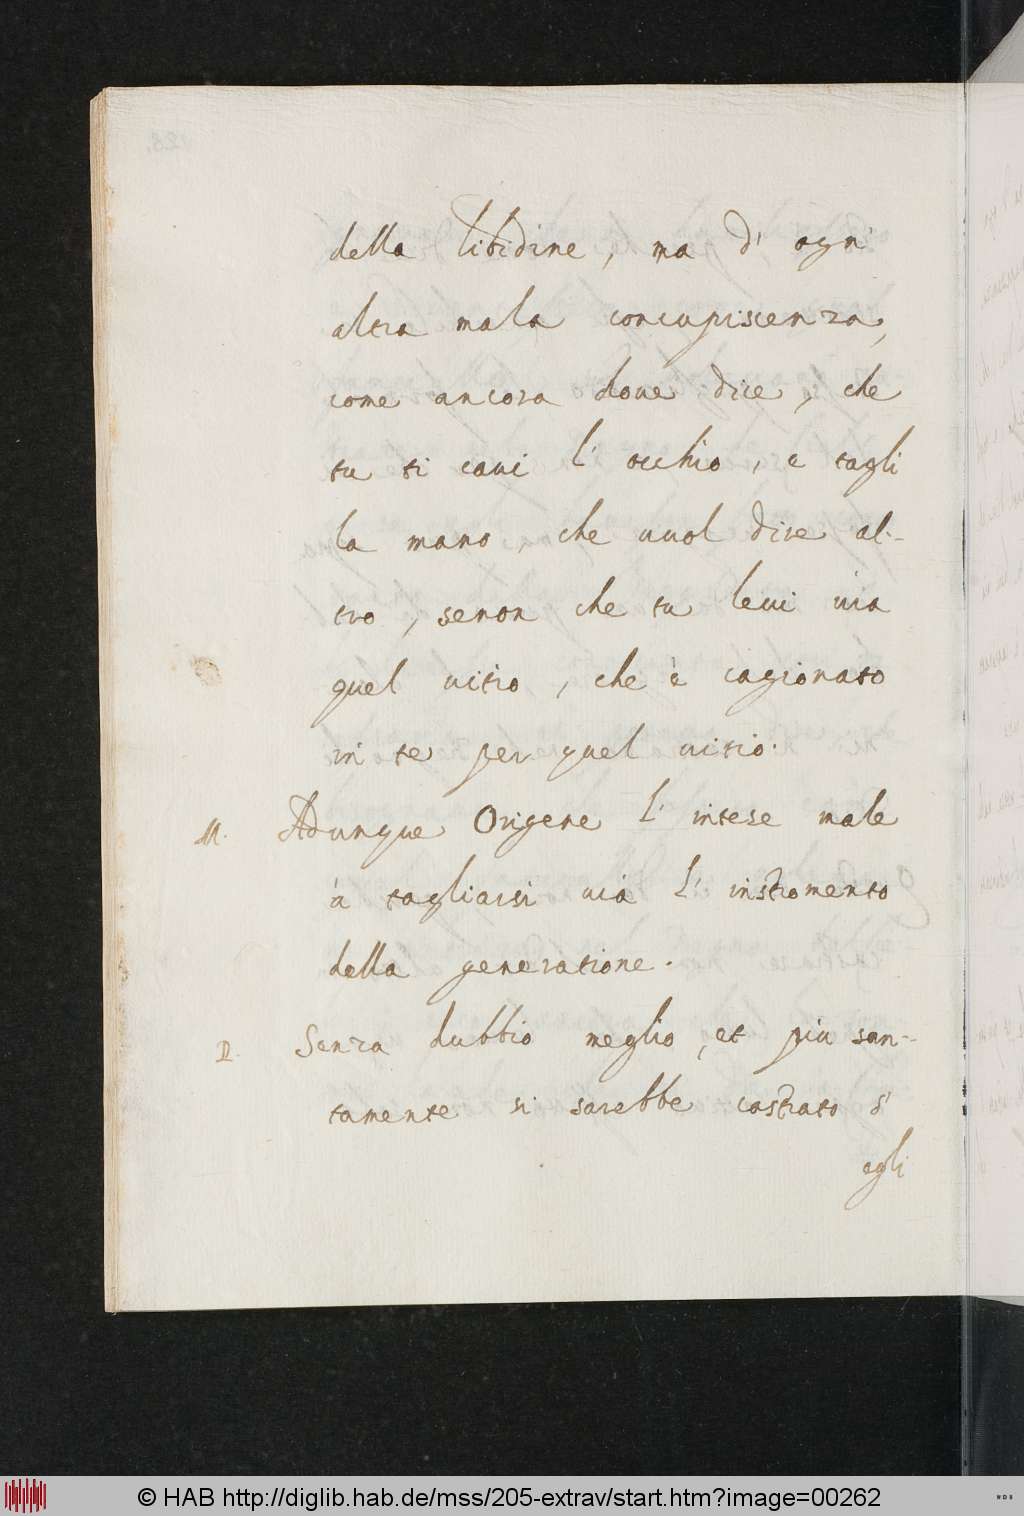 della libidine, ma d' ogn'
altra mala concupiscenza,
come ancora doue dice, che
tu ti caui l' occhio, e tagli
la mano, che uuol dire al-
tro, senon che tu leui uia
quel uitio, che è cagionato
in te per quel uitio.
M. Adunque Origene l' intese male
à tagliarsi uia l' instromento
della generatione.
D. Senza dubbio meglio, et piu san-
tamente si sarebbe castrato s'
egli
© HAB http://diglib.hab.de/mss/205-extrav/start.htm?image=00262